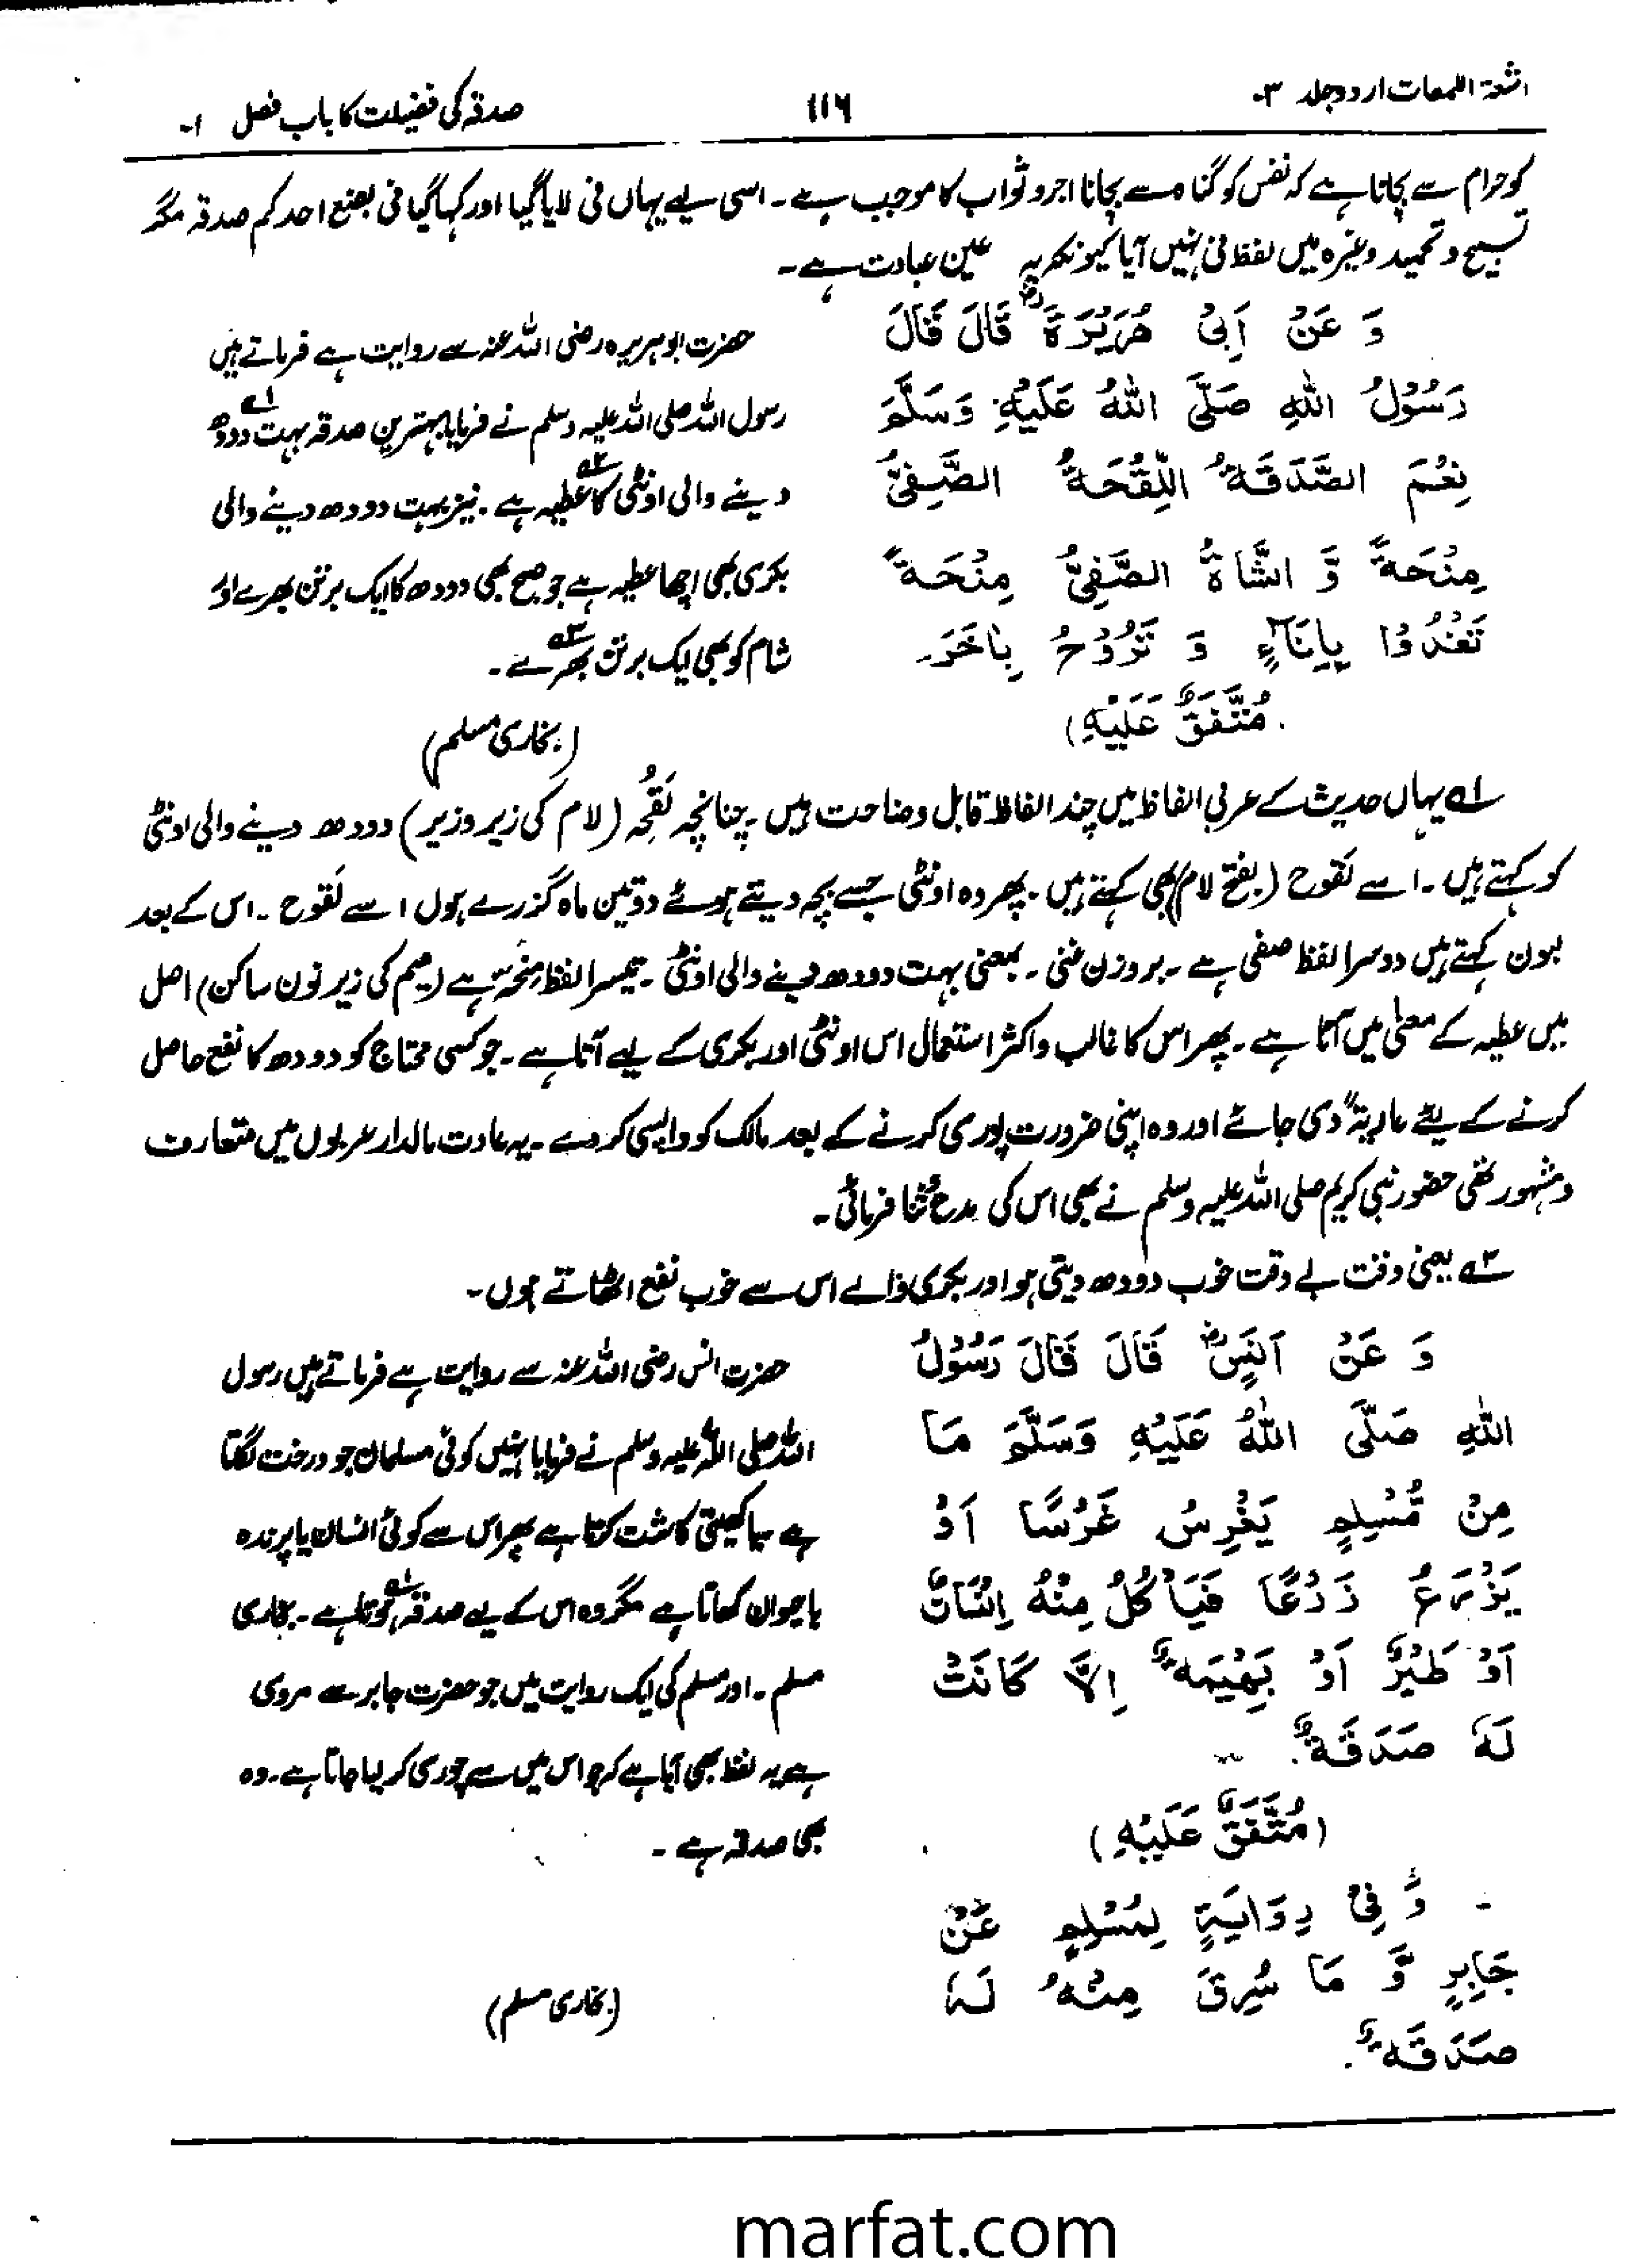 اشعۃ اللمعات اردو جلد ۳-
۱۱۶
صدقہ کی فضیلت کا باب فصل ۱-
کو حرام سے بچاتا ہے کہ نفس کو گناہ سے بچانا اجر و ثواب کا موجب ہے ۔ اسی لیے یہاں فی لایا گیا اور کہا گیا فی بضع احدکم صدقہ مگر
تسبیح و تحمید وغیرہ میں لفظ فی نہیں آیا کیونکہ یہ عین عبادت ہے ۔
وَ عَنْ اَبِیْ هُرَیْرَةَ ؓ قَالَ قَالَ
رَسُوْلُ اللهِ صَلَّی اللهُ عَلَیْهِ وَسَلَّمَ
نِعْمَ الصَّدَقَةُ اللِّقْحَةُ الصَّفِیُّ
مِنْحَةً وَّ الشَّاةُ الصَّفِیُّ مِنْحَةً
تَغْدُوْا بِاِنَآءٍ وَ تَرُوْحُ بِاٰخَرَ۔
مُتَّفَقٌ عَلَیْهِ)
حضرت ابو ہریرہ رضی اللہ عنہ سے روایت ہے فرماتے ہیں
رسول اللہ صلی اللہ علیہ وسلم نے فرمایا بہترین صدقہ بہت دودھ ؎۱
دینے والی اونٹنی کا عطیہ ؎۲ ہے ۔ نیز بہت دودھ دینے والی
بکری بھی اچھا عطیہ ہے جو صبح بھی دودھ کا ایک برتن بھرے اور
شام کو بھی ایک برتن بھرے ؎۳ ۔
(بخاری مسلم)
؎۱ یہاں حدیث کے عربی الفاظ میں چند الفاظ قابل وضاحت ہیں ۔ چنانچہ لَقْحہُ (لام کی زیر و زبر) دودھ دینے والی اونٹنی
کو کہتے ہیں ۔ اسے لَقوح (بفتح لام) بھی کہتے ہیں ۔ پھر وہ اونٹنی جسے بچہ دیتے ہوئے دو تین ماہ گزرے ہوں اسے لَقوح ۔ اس کے بعد
لبون کہتے ہیں دوسرا لفظ صفی ہے ۔ بروزن غنی ۔ بمعنی بہت دودھ دینے والی اونٹنی ۔ تیسرا لفظ مِنْحَۃ ہے (میم کی زیر نون ساکن) اصل
میں عطیہ کے معنیٰ میں آتا ہے ۔ پھر اس کا غالب و اکثر استعمال اس اونٹنی اور بکری کے لیے آتا ہے ۔ جو کسی محتاج کو دودھ کا نفع حاصل
کرنے کے لئے عاریۃً دی جائے اور وہ اپنی ضرورت پوری کرنے کے بعد مالک کو واپس کر دے ۔ یہ عادت مالدار عربوں میں متعارف
و مشہور تھی حضور نبی کریم صلی اللہ علیہ وسلم نے بھی اس کی مدح و ثنا فرمائی ۔
؎۳ یعنی وقت بے وقت خوب دودھ دیتی ہو اور بکری والے اس سے خوب نفع اٹھاتے ہوں ۔
وَ عَنْ اَنَسٍ ؓ قَالَ قَالَ رَسُوْلُ
اللهِ صَلَّی اللهُ عَلَیْهِ وَسَلَّمَ مَا
مِنْ مُّسْلِمٍ یَغْرِسُ غَرْسًا اَوْ
یَزْرَعُ زَرْعًا فَیَاْکُلُ مِنْهُ اِنْسَانٌ
اَوْ طَیْرٌ اَوْ بَهِیْمَةٌ اِلَّا کَانَتْ
لَهٗ صَدَقَةٌ.
(مُتَّفَقٌ عَلَیْهِ)
- وَ فِیْ رِوَایَةٍ لِمُسْلِمٍ عَنْ
جَابِرٍ وَّ مَا سُرِقَ مِنْهُ لَهٗ
صَدَقَةٌ.
حضرت انس رضی اللہ عنہ سے روایت ہے فرماتے ہیں رسول
اللہ صلی اللہ علیہ وسلم نے فرمایا نہیں کوئی مسلمان جو درخت لگاتا
ہے یا کھیتی کاشت کرتا ہے پھر اس سے کوئی انسان یا پرندہ
یا حیوان کھاتا ہے مگر وہ اس کے لیے صدقہ ؎۱ ہوتا ہے ۔ بخاری
مسلم ۔ اور مسلم کی ایک روایت میں جو حضرت جابر سے مروی
ہے یہ لفظ بھی آیا ہے کہ جو اس میں سے چوری کر لیا جاتا ہے ۔ وہ
بھی صدقہ ہے ۔
(بخاری مسلم)
marfat.com